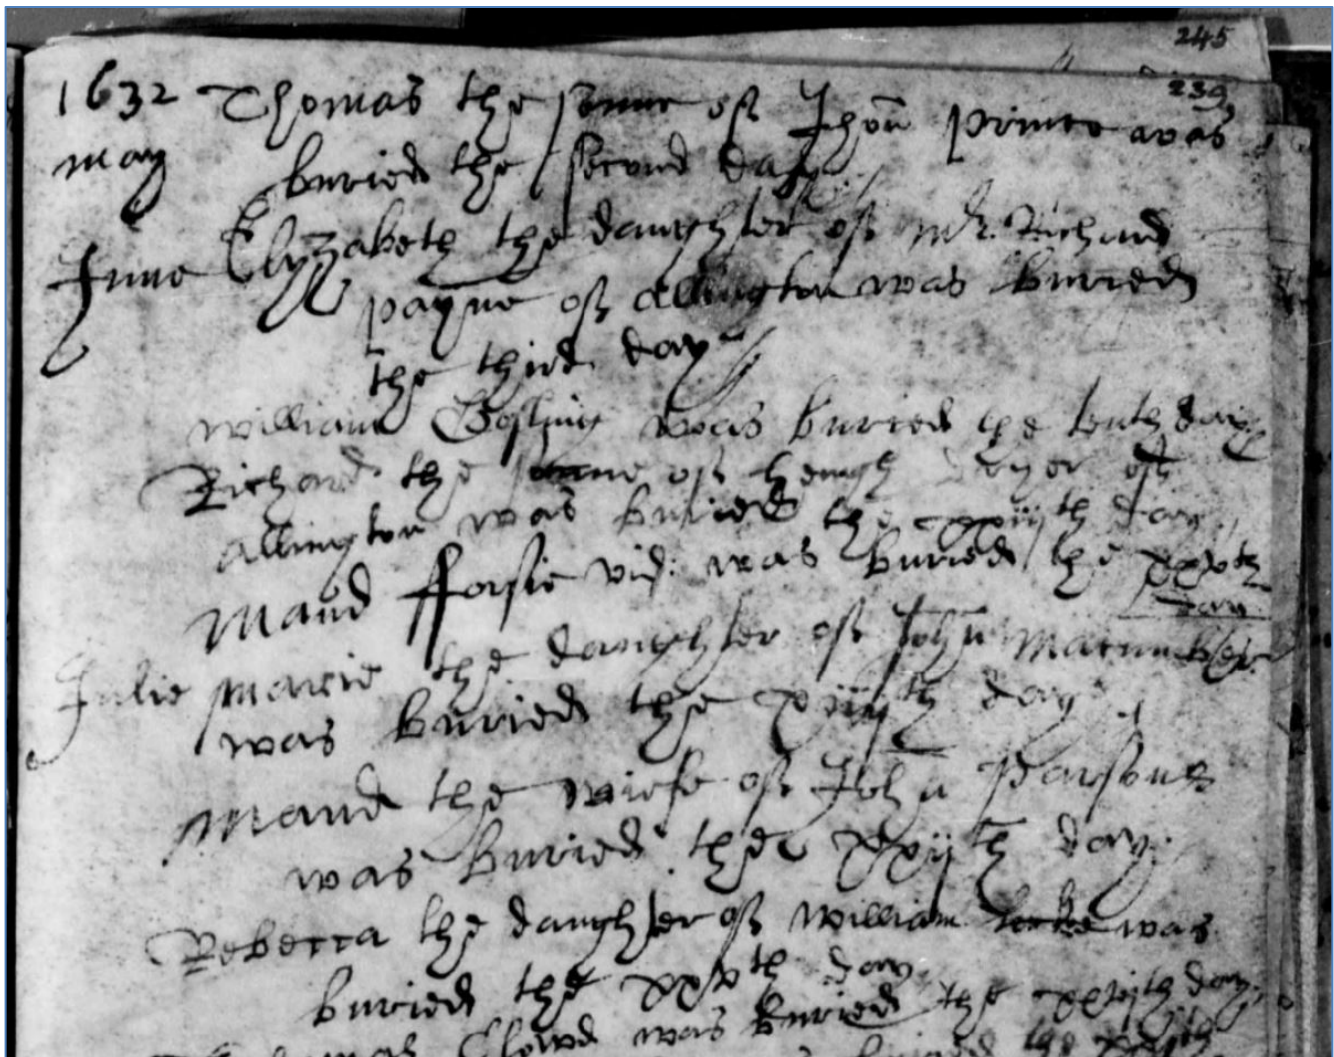 245
239
1632 Thomas the sonne of Jhon Prince was
may buried the second day
June Elyzabeth the daughter of mr. Richard
payne of Allington was buried
the third day
William Gosling was buried ye tenth day
Richard the sonne of heugh of
Allington was buried the xxiijth day
Maud fforsie vid. was buried the xxvth
day
Julie Marie the daughter of John
was buried the xiiijth day
Maud the wiefe of John Parsons
was buried the xxijth day
Rebecca the daughter of William Locke was
buried the xxvth day
was buried the day
buried the